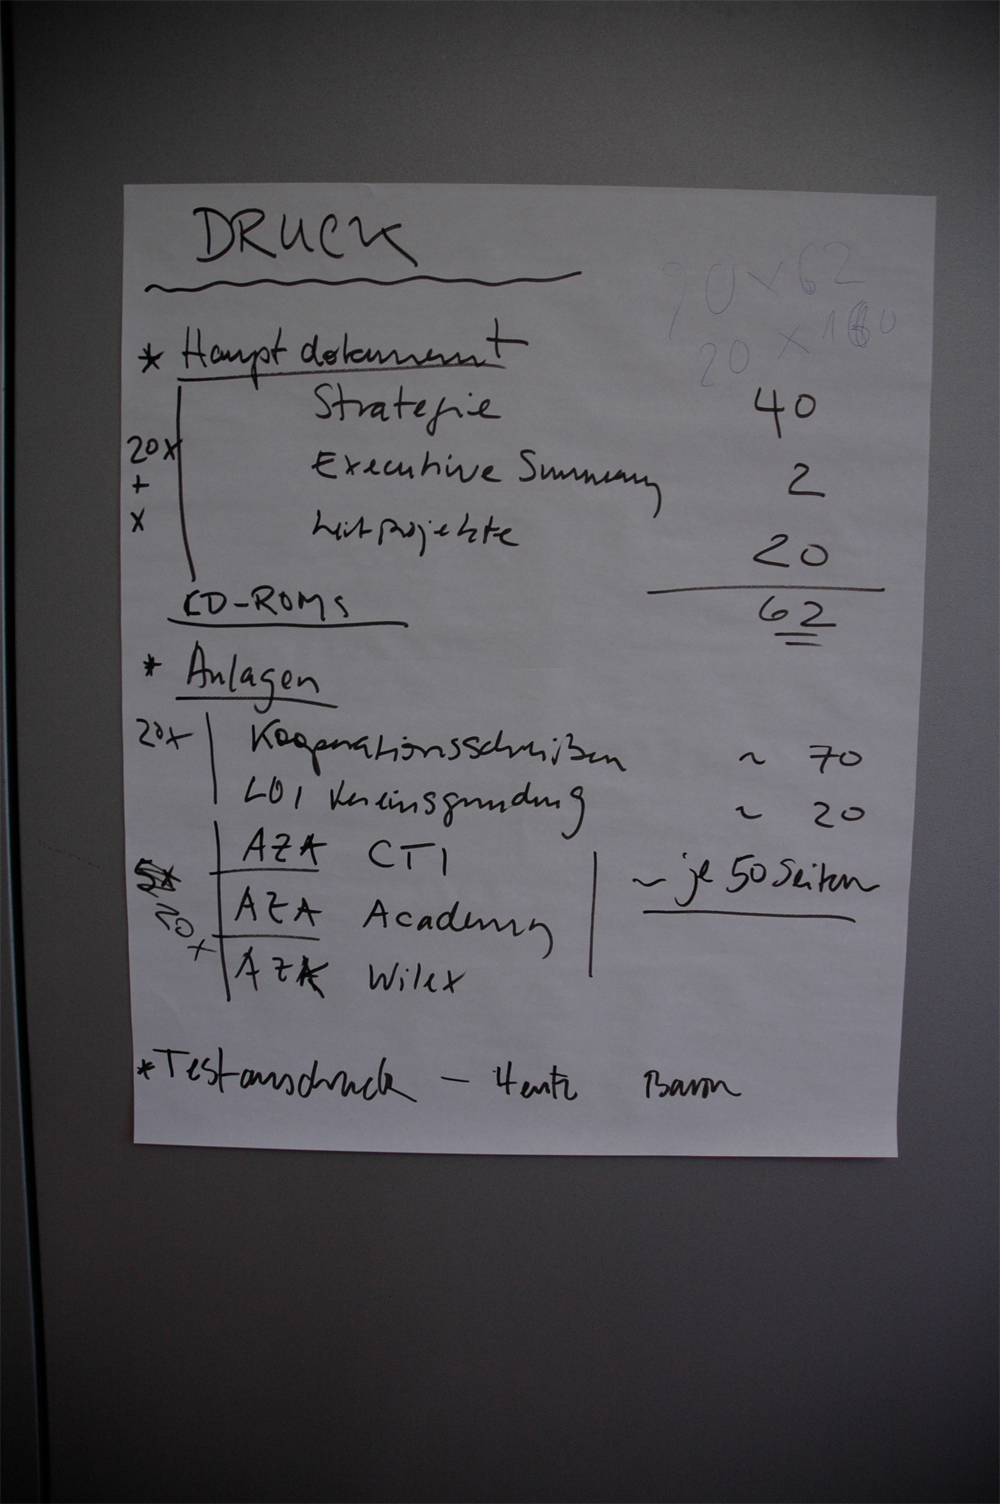 DRUCK
90 x 62
20 x 160
* Hauptdokument
Strategie 40
20x
+
x
Executive Summary 2
Leitprojekte 20
62
CD-ROMs
* Anlagen
20x Kooperationsschreiben ~ 70
LOI Vereinsgründung ~ 20
AZA CTI
~ je 50 Seiten
20x
AZA Academy
AZA Wilex
* Testausdruck - Heute Baron